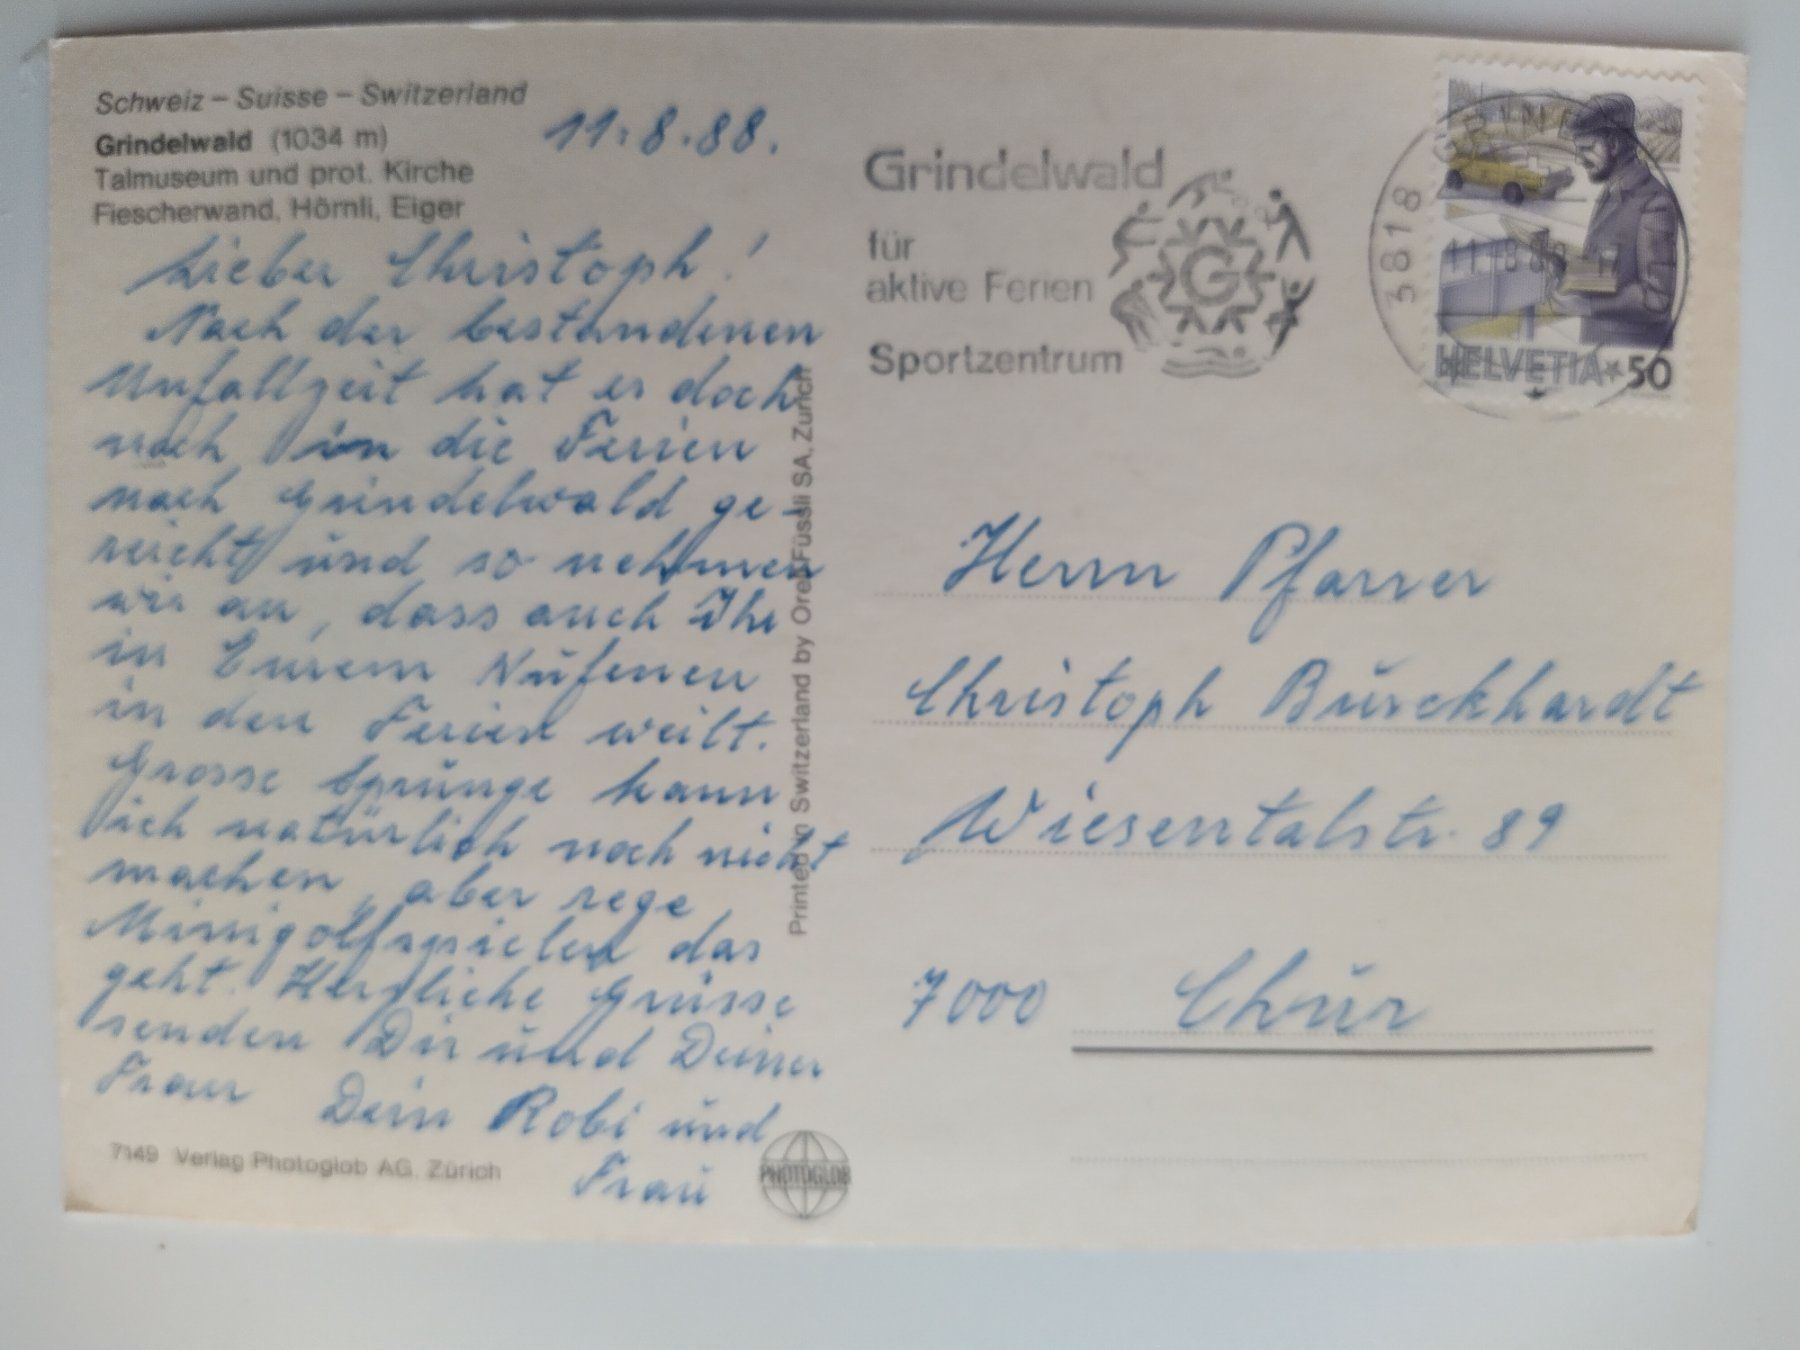 Schweiz – Suisse – Switzerland
Grindelwald (1034 m)
Talmuseum und prot. Kirche
Fiescherwand, Hörnli, Eiger
11.8.88.
Lieber Christoph!
Nach der bestandenen
Unfallzeit hat es doch
noch in die Ferien
nach Grindelwald ge-
reicht und so nehmen
wir an, dass auch Ihr
in Eurem Nufenen
in den Ferien weilt.
Grosse Sprünge kann
ich natürlich noch nicht
machen, aber rege
Minigolfspielen das
geht. Herzliche Grüsse
senden Dir und Deiner
Frau Dein Robi und
Frau
7149 Verlag Photoglob AG, Zürich
PHOTOGLOB
Printed in Switzerland by Orell Füssli SA, Zürich
Grindelwald
für
aktive Ferien
Sportzentrum
G
3818 GRINDE
11.-8.88-17
HELVETIA 50
Herrn Pfarrer
Christoph Burckhardt
Wiesentalstr. 89
7000 Chur